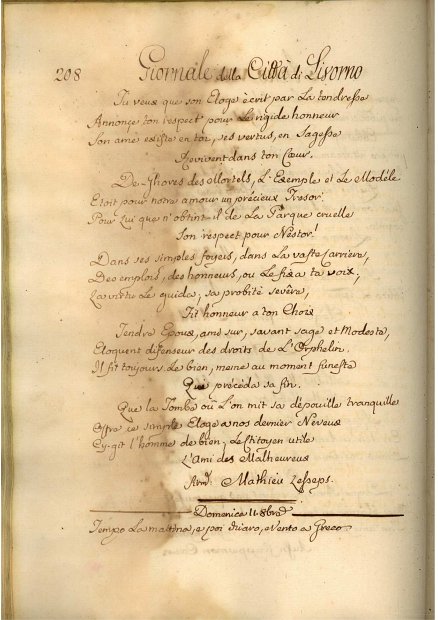 208 Giornale della Città di Livorno
Tu veux que son Eloge écrit par La tendresse
Annonçe ton respect pour Le rigide honneur
Son amié existe en toi, ses vertus, en Sagesse
Revivent dans ton Cœur.
Des Mortels, L'Exemple et Le Modéle
Etoit pour notre amour un précieux Tresor:
Pour Lui que n'obtint-il de La Parque cruelle
Ton respect pour Néstor!
Dans ses simples foyers, dans La vaste Carriere,
Des emplois, des honneurs, ou Le fixa ta voix,
La vertu Le guida, sa probité sevère,
Fit honneur a ton Choix
Tendre Epoux, ami sur, savant sage et Modeste,
Eloquent difenseur des droits de L'Orphelin.
Il fit toujours Le bien, meme au moment funeste
Que précéda sa fin.
Que la Tombe où L'on mit sa dépouille tranquille
Offre ce simple Eloge a nos dernier Neveux
Cy-git l'homme de bien, Le Citoyen utile
L'Ami des Malheureux
Mathieu Lesseps.
Domenica 11. 8bre
Tempo La mattina, e poi chiaro, e Vento a Greco.